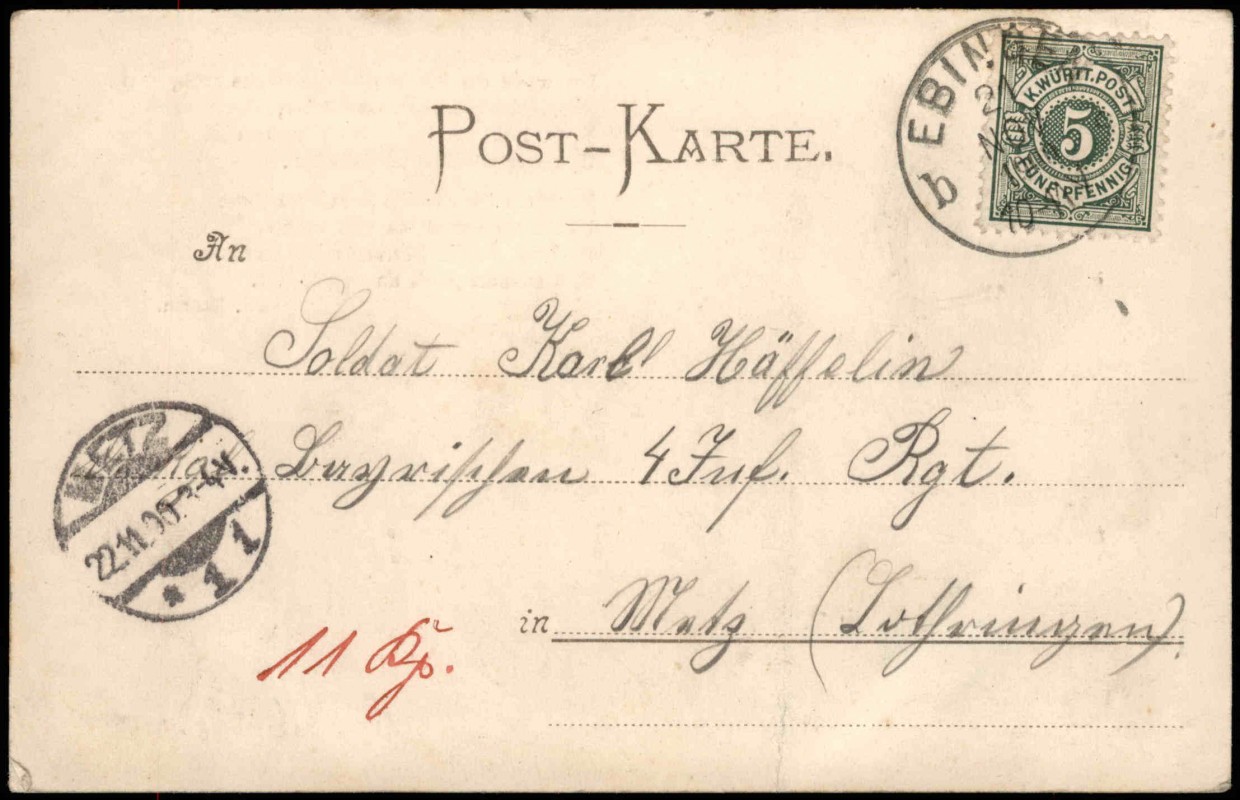 POST-KARTE.
EBIN
21
NOV
10-11
b
K. WÜRTT. POST
5
FÜNF PFENNIG
An
Soldat Karl Häffelin
Bayrischen 4 Inf. Rgt.
METZ
22.11.00.
* 1 1
in Metz (Lothringen)
11 Kp.